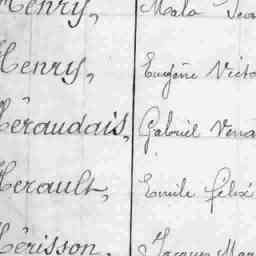 Henry, Mala
Henry, Eugène Victo
Héraudais, Gabriel Vena
Herault, Emile Félix
Hérisson, Jacques Mar